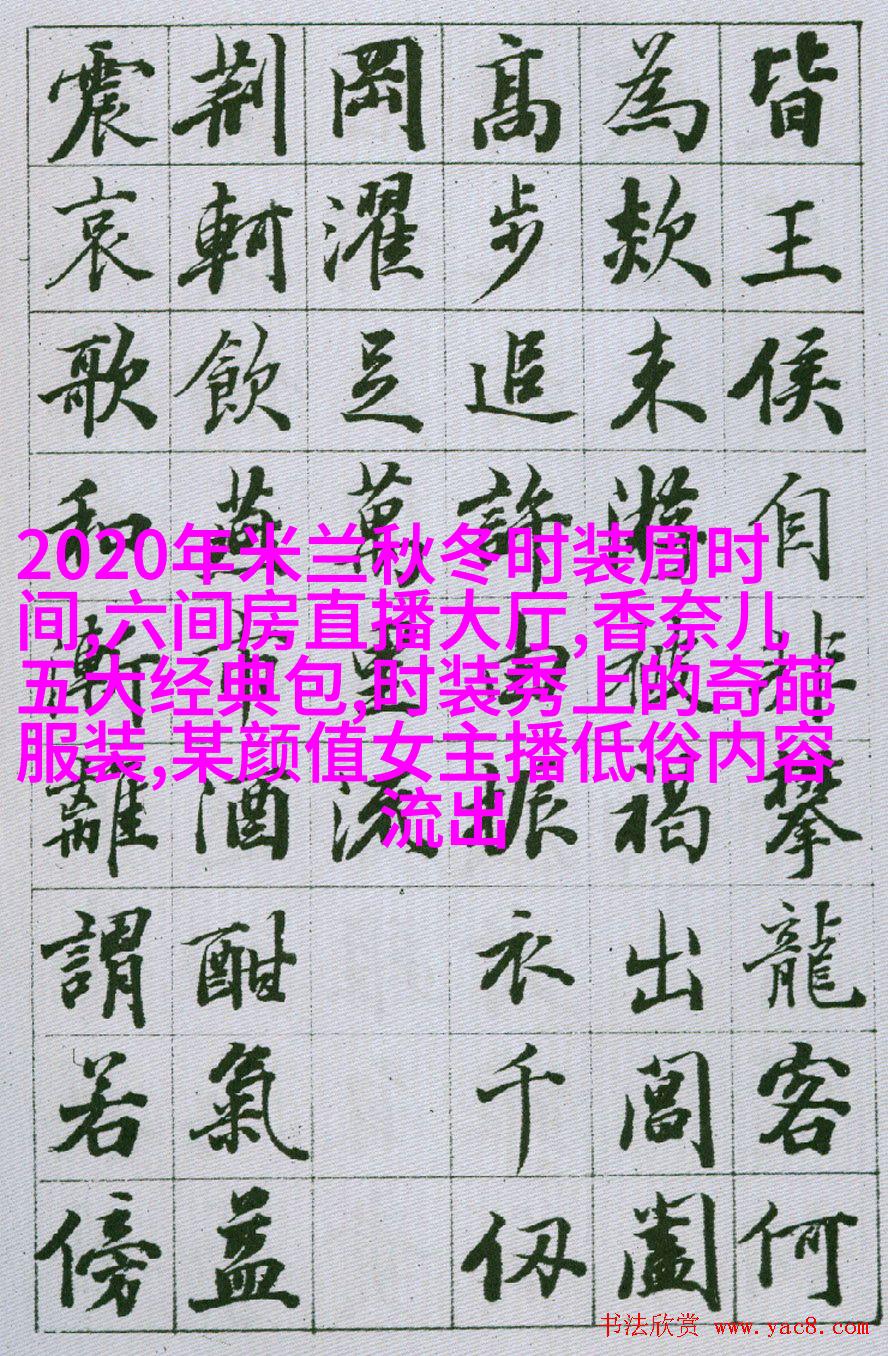 皆王侯自非攀龍客何
為欻来遊被褐出閶闔
高步追許由振衣千仞
岡濯足萬里流
荊軻飲燕市酒酣氣益
震哀歌和漸離謂若傍
2020年米兰秋冬时装周时
间,六间房直播大厅,香奈儿
五大经典包,时装秀上的奇葩
服装,某颜值女主播低俗内容
流出
书法欣赏 www.yac8.com